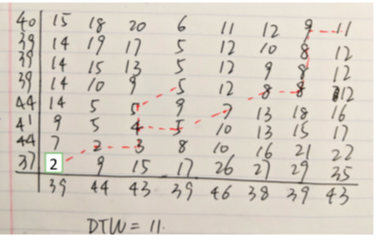 40 15 18 20 6 11 12 9 11
39 14 19 17 5 12 10 8 12
39 14 15 13 5 12 9 8 12
39 14 10 9 5 12 8 8 12
44 14 5 5 9 7 13 18 16
41 9 5 4 5 10 13 15 17
44 7 2 3 8 10 16 21 22
37 2 9 15 17 26 27 29 35
39 44 43 39 46 38 39 43
DTW = 11.